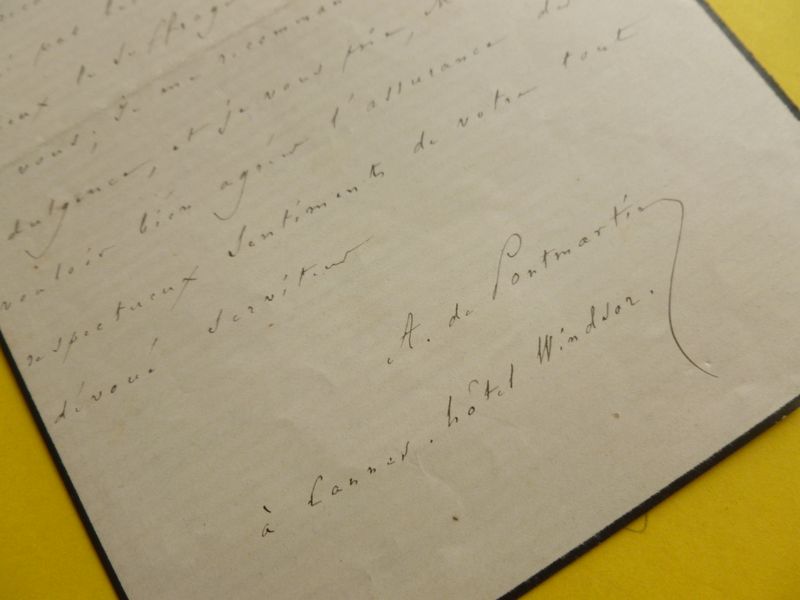 pas
le suffrage
vous; je me recomman
dulgence, et je vous prie, M
vouloir bien agréer l'assurance des
respectueux sentiments de votre tout
dévoué serviteur
A. de Pontmartin
à Cannes. hôtel Windsor.